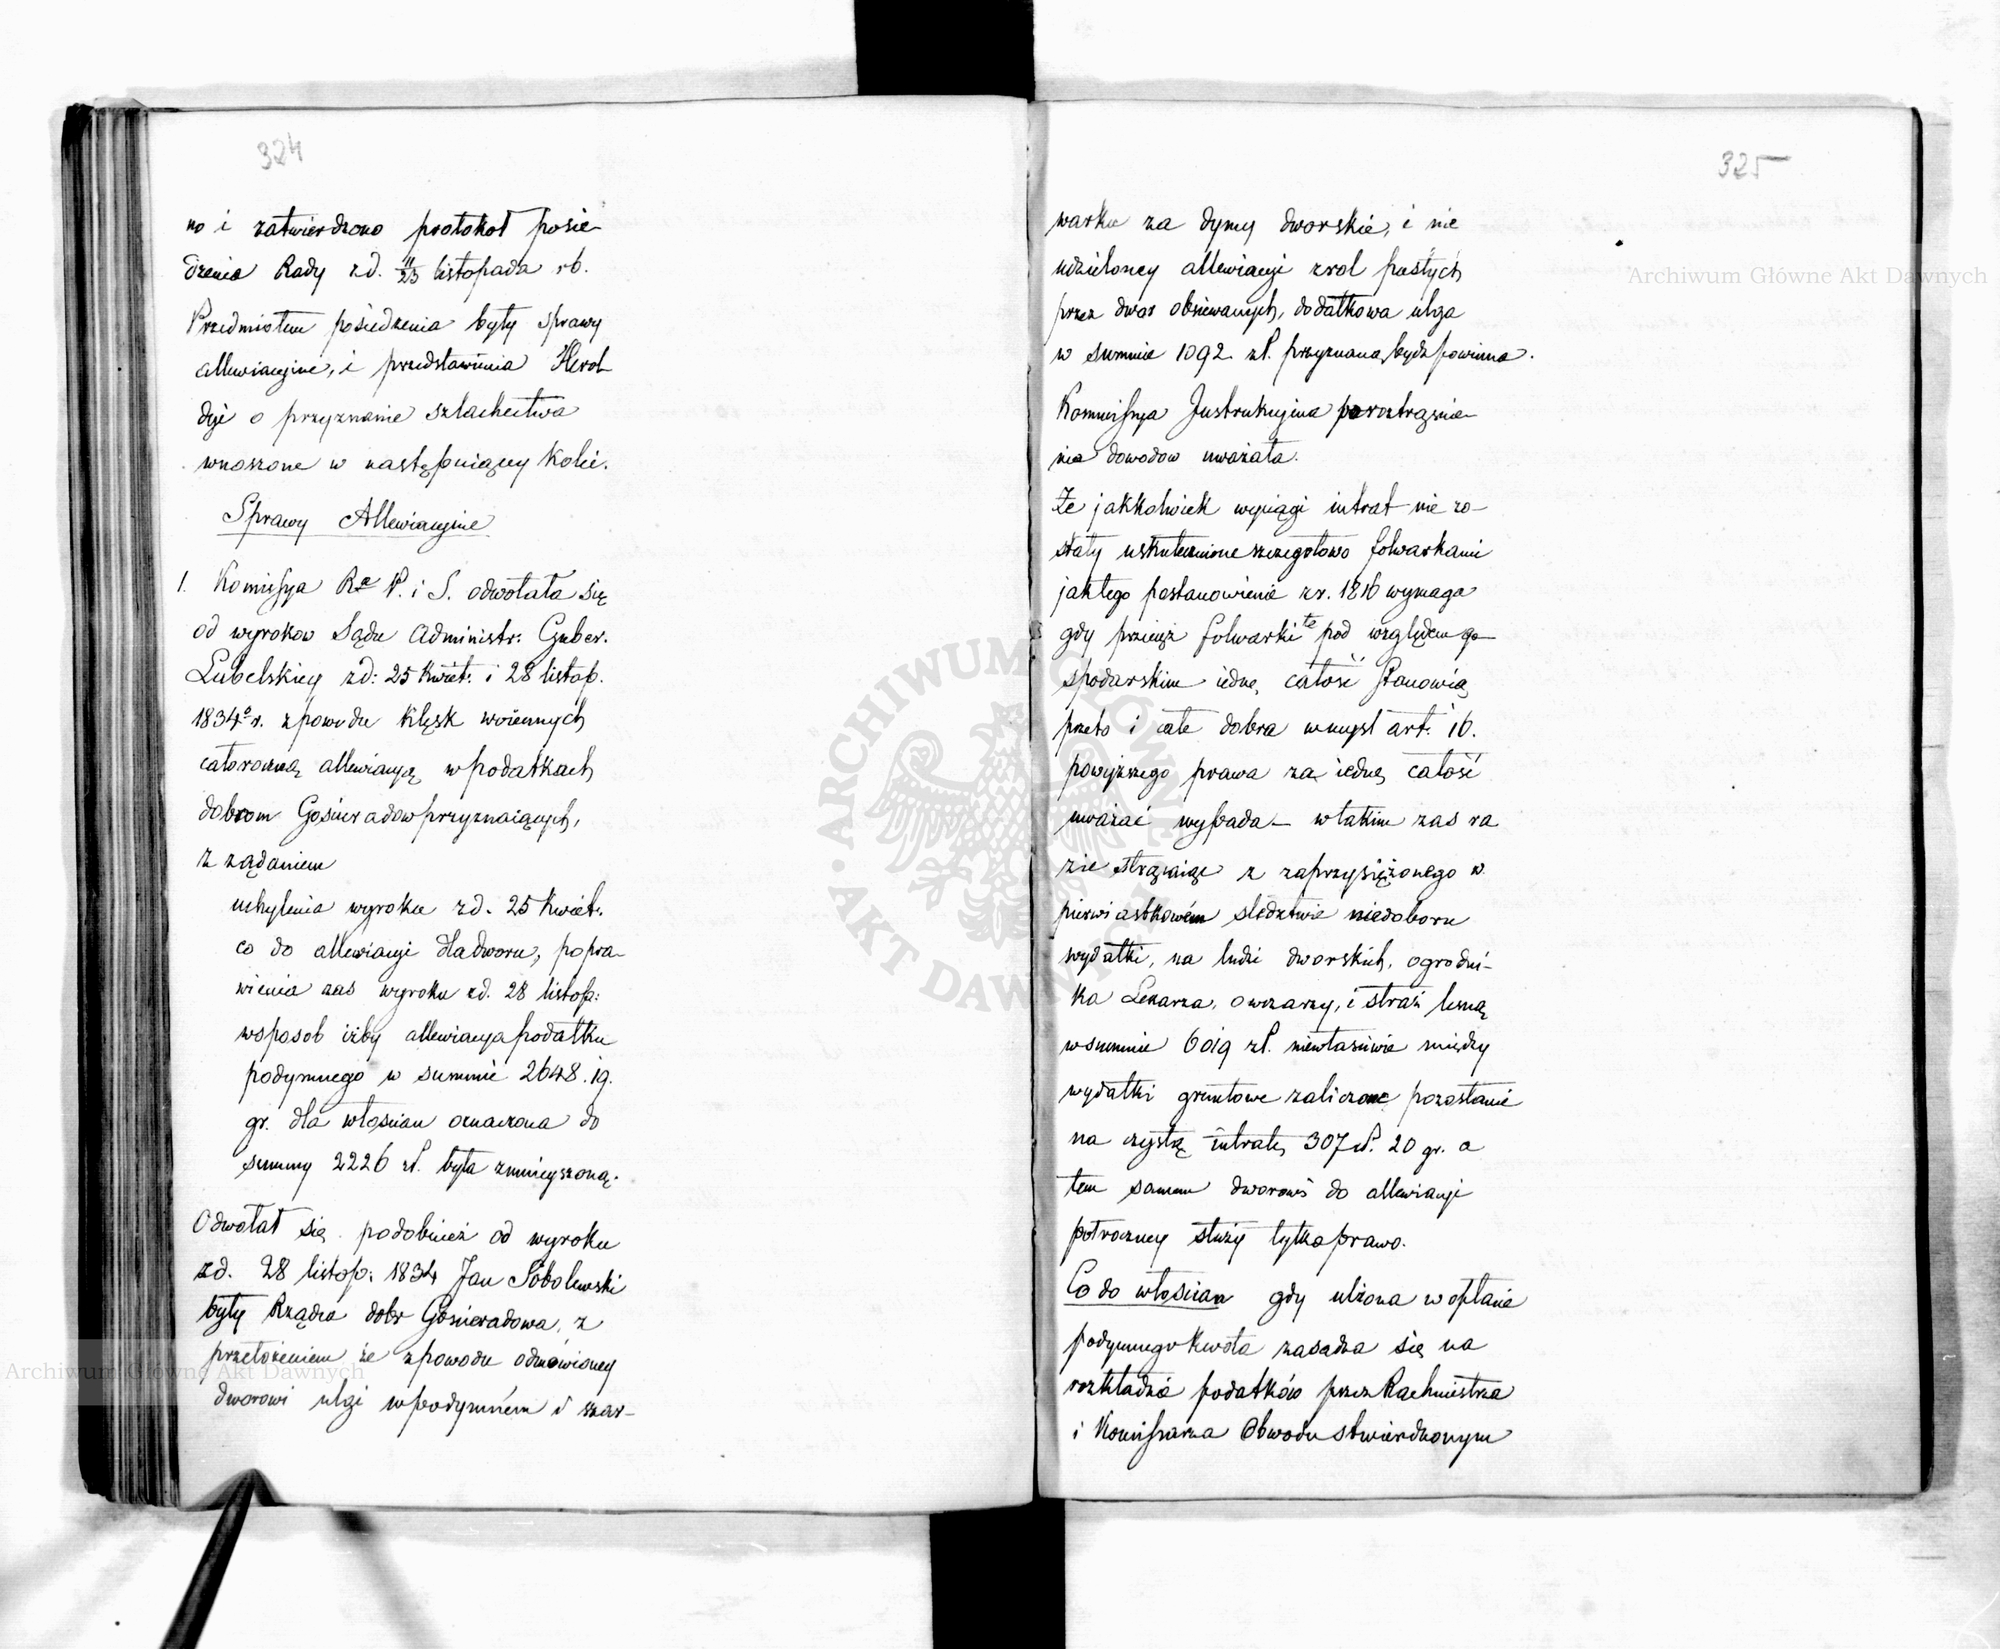 324
no i zatwierdzono protokoł posie-
dzenia Rady z d. 11/23 listopada rb.
Przedmiotem posiedzenia były sprawy
allewiacyjne, i przedstawienia Herol
dyi o przyznanie szlachectwa
wnoszone w następuiącey kolei.
Sprawy Allewiacyjne
1. Komissya Rz P. i S. odwołała się
od wyrokow Sądu Administr: Guber.
Lubelskiey z d: 25 Kwiet: i 28 listop.
1834º r. z powodu klęsk woiennych
całoroczną allewiacyą w podatkach
dobrom Gościeradow przyznaiących,
z żądaniem
uchylenia wyroku z d. 25 Kwiet:
co do allewiacyi dla dworu, popra-
wienia zas wyroku z d. 28 listop:
w sposob iżby allewiacya podatku
podymnego w summie 2648. 19.
gr. dla włoscian oznaczona do
summy 2226 zł. była zmnieyszoną.
Odwołał się podobnież od wyroku
z d. 28 listop: 1834 Jan Sobolewski
były Rządca dobr Gościeradowa, z
przełożeniem że z powodu odmówioney
dworowi ulgi w podymném i szar-
325
warku za dymy dworskie, i nie
udzieloney allewiacyi z rol pustych
przez dwor obsiewanych, dodatkowa ulga
w summie 1092 zł. przyznaną bydź powinna.
Kommissya Instrukcyjna po roztrząśnie-
niu dowodow uważała.
Że jakkolwiek wyciągi intrat nie zo-
stały uskutecznione szczegołowo folwarkami
jak tego postanowienie z r. 1816 wymaga
gdy przecież folwarki te pod względem go-
spodarskim iedną całość stanowią
przeto i całe dobra w mysl art: 16.
powyższego prawa za iedną całość
uważać wypada – w takim zas ra
zie strącaiąc z zaprzysiężonego w
pierwiastkowém sledztwie niedoboru
wydatki, na ludzi dworskich, ogrodni-
ka Lekarza, owczarzy, i straż lesną
w summie 6019 zł. niewłaściwie między
wydatki gruntowe zaliczone pozostanie
na czystą intratę 307 zł. 20 gr. a
tem samem dworowi do allewiacyi
połroczney służy tylko prawo.
Co do włoscian gdy ulżona w opłacie
podymnego kwota zasadza się na
rozkładzie podatków przez Rachmistrza
i Kommissarza Obwodu stwierdzonym
Archiwum Główne Akt Dawnych
Archiwum Główne Akt Dawnych
ARCHIWUM GŁÓWNE AKT DAWNYCH